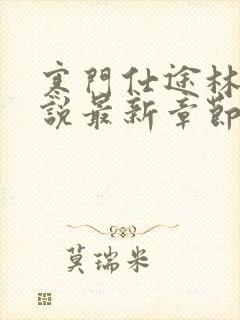 寒門仕途林
說最新章節
莫瑞米